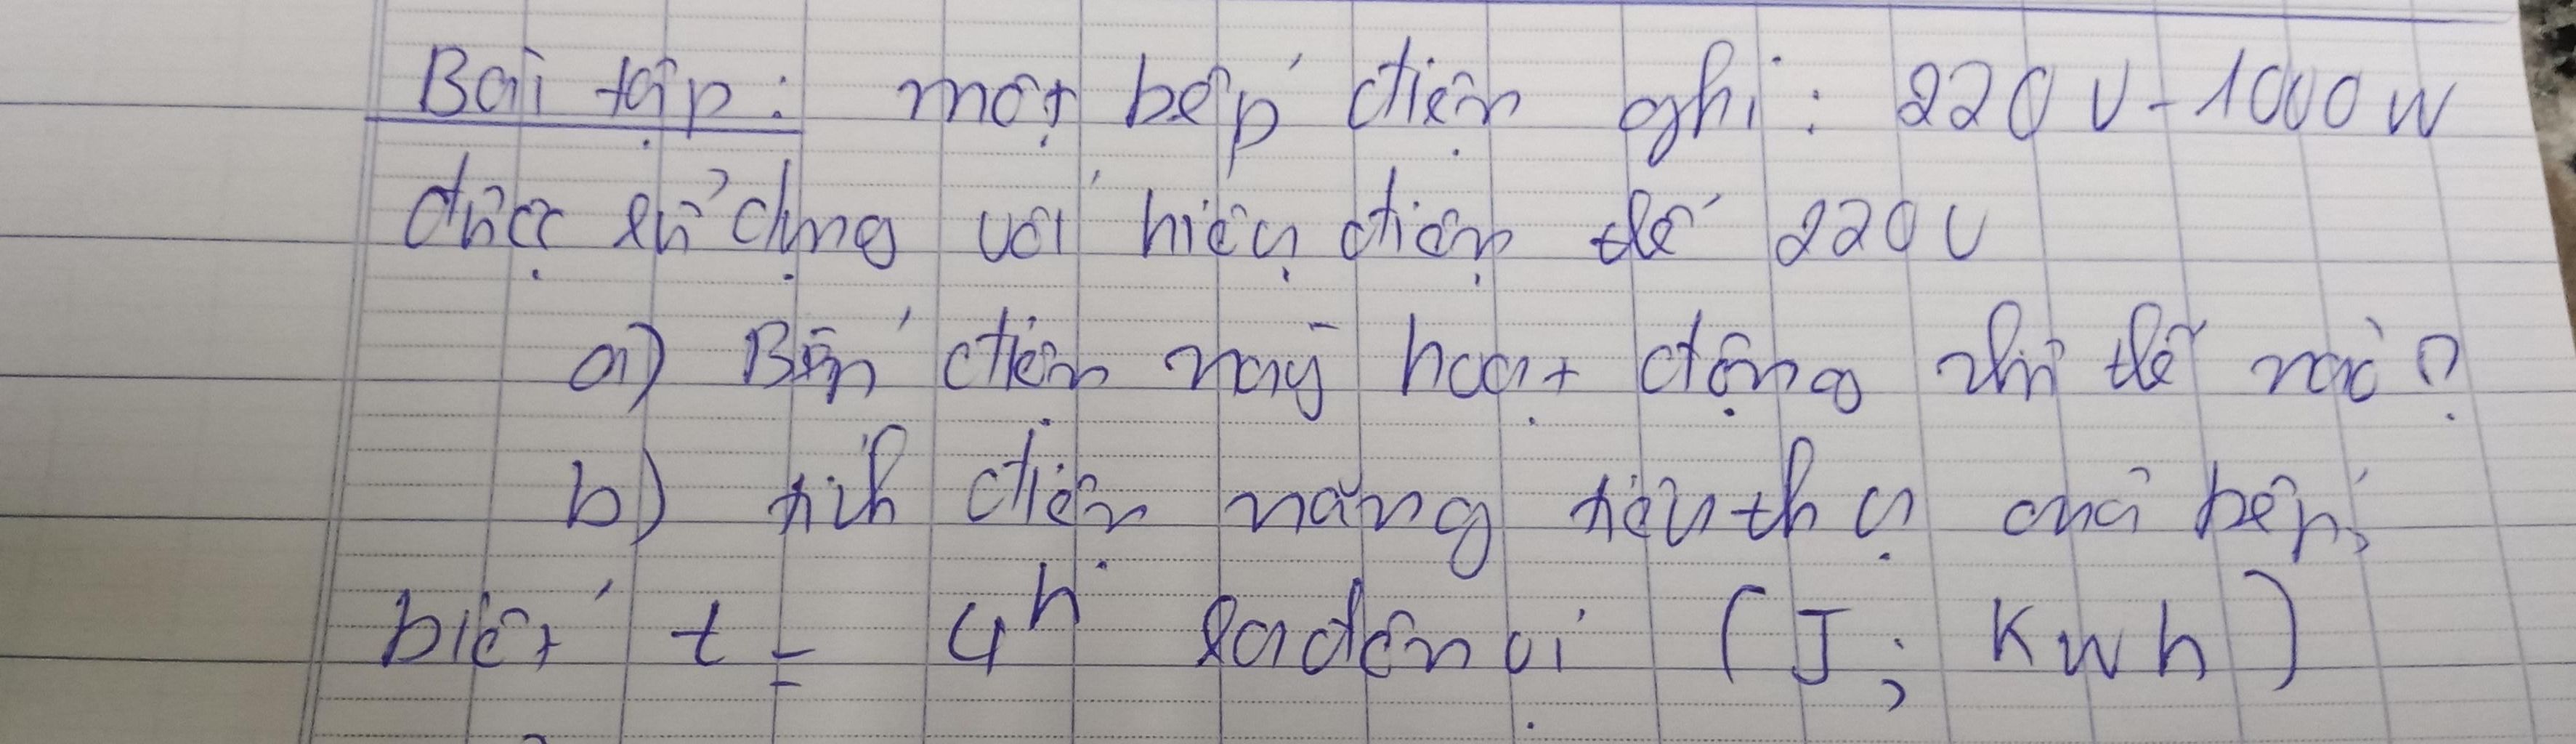 Bài tập: một bếp điện ghi: 220V-1000W
được sử dụng với hiệu điện thế 220V
a) Bếp điện này hoạt động như thế nào?
b) tính điện năng tiêu thụ của bếp,
biết t = 4h ra đơn vị (J; Kwh)